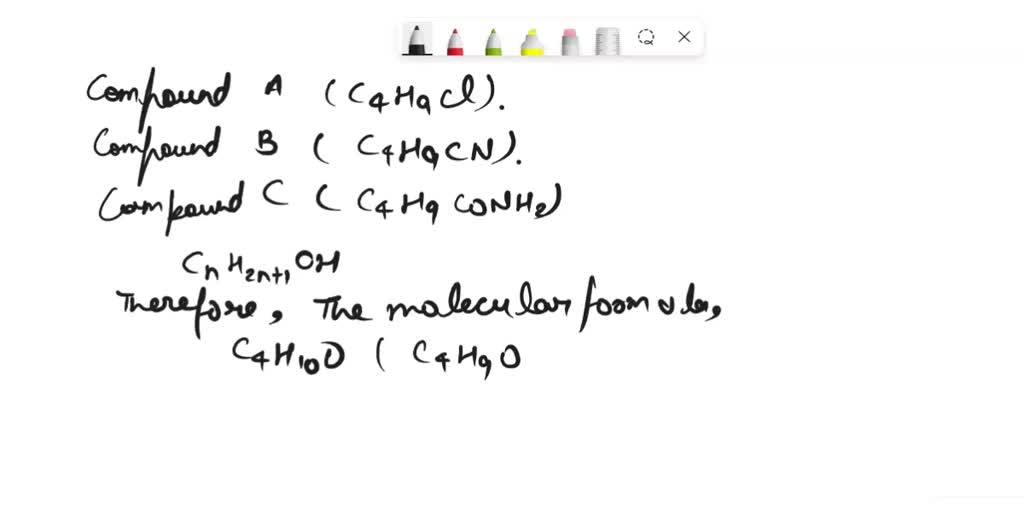 Compound A (C4H9Cl).
Compound B (C4H9CN).
Compound C (C4H9CONH2)
CnH2n+1OH
Therefore, The molecular formula,
C4H10O (C4H9O